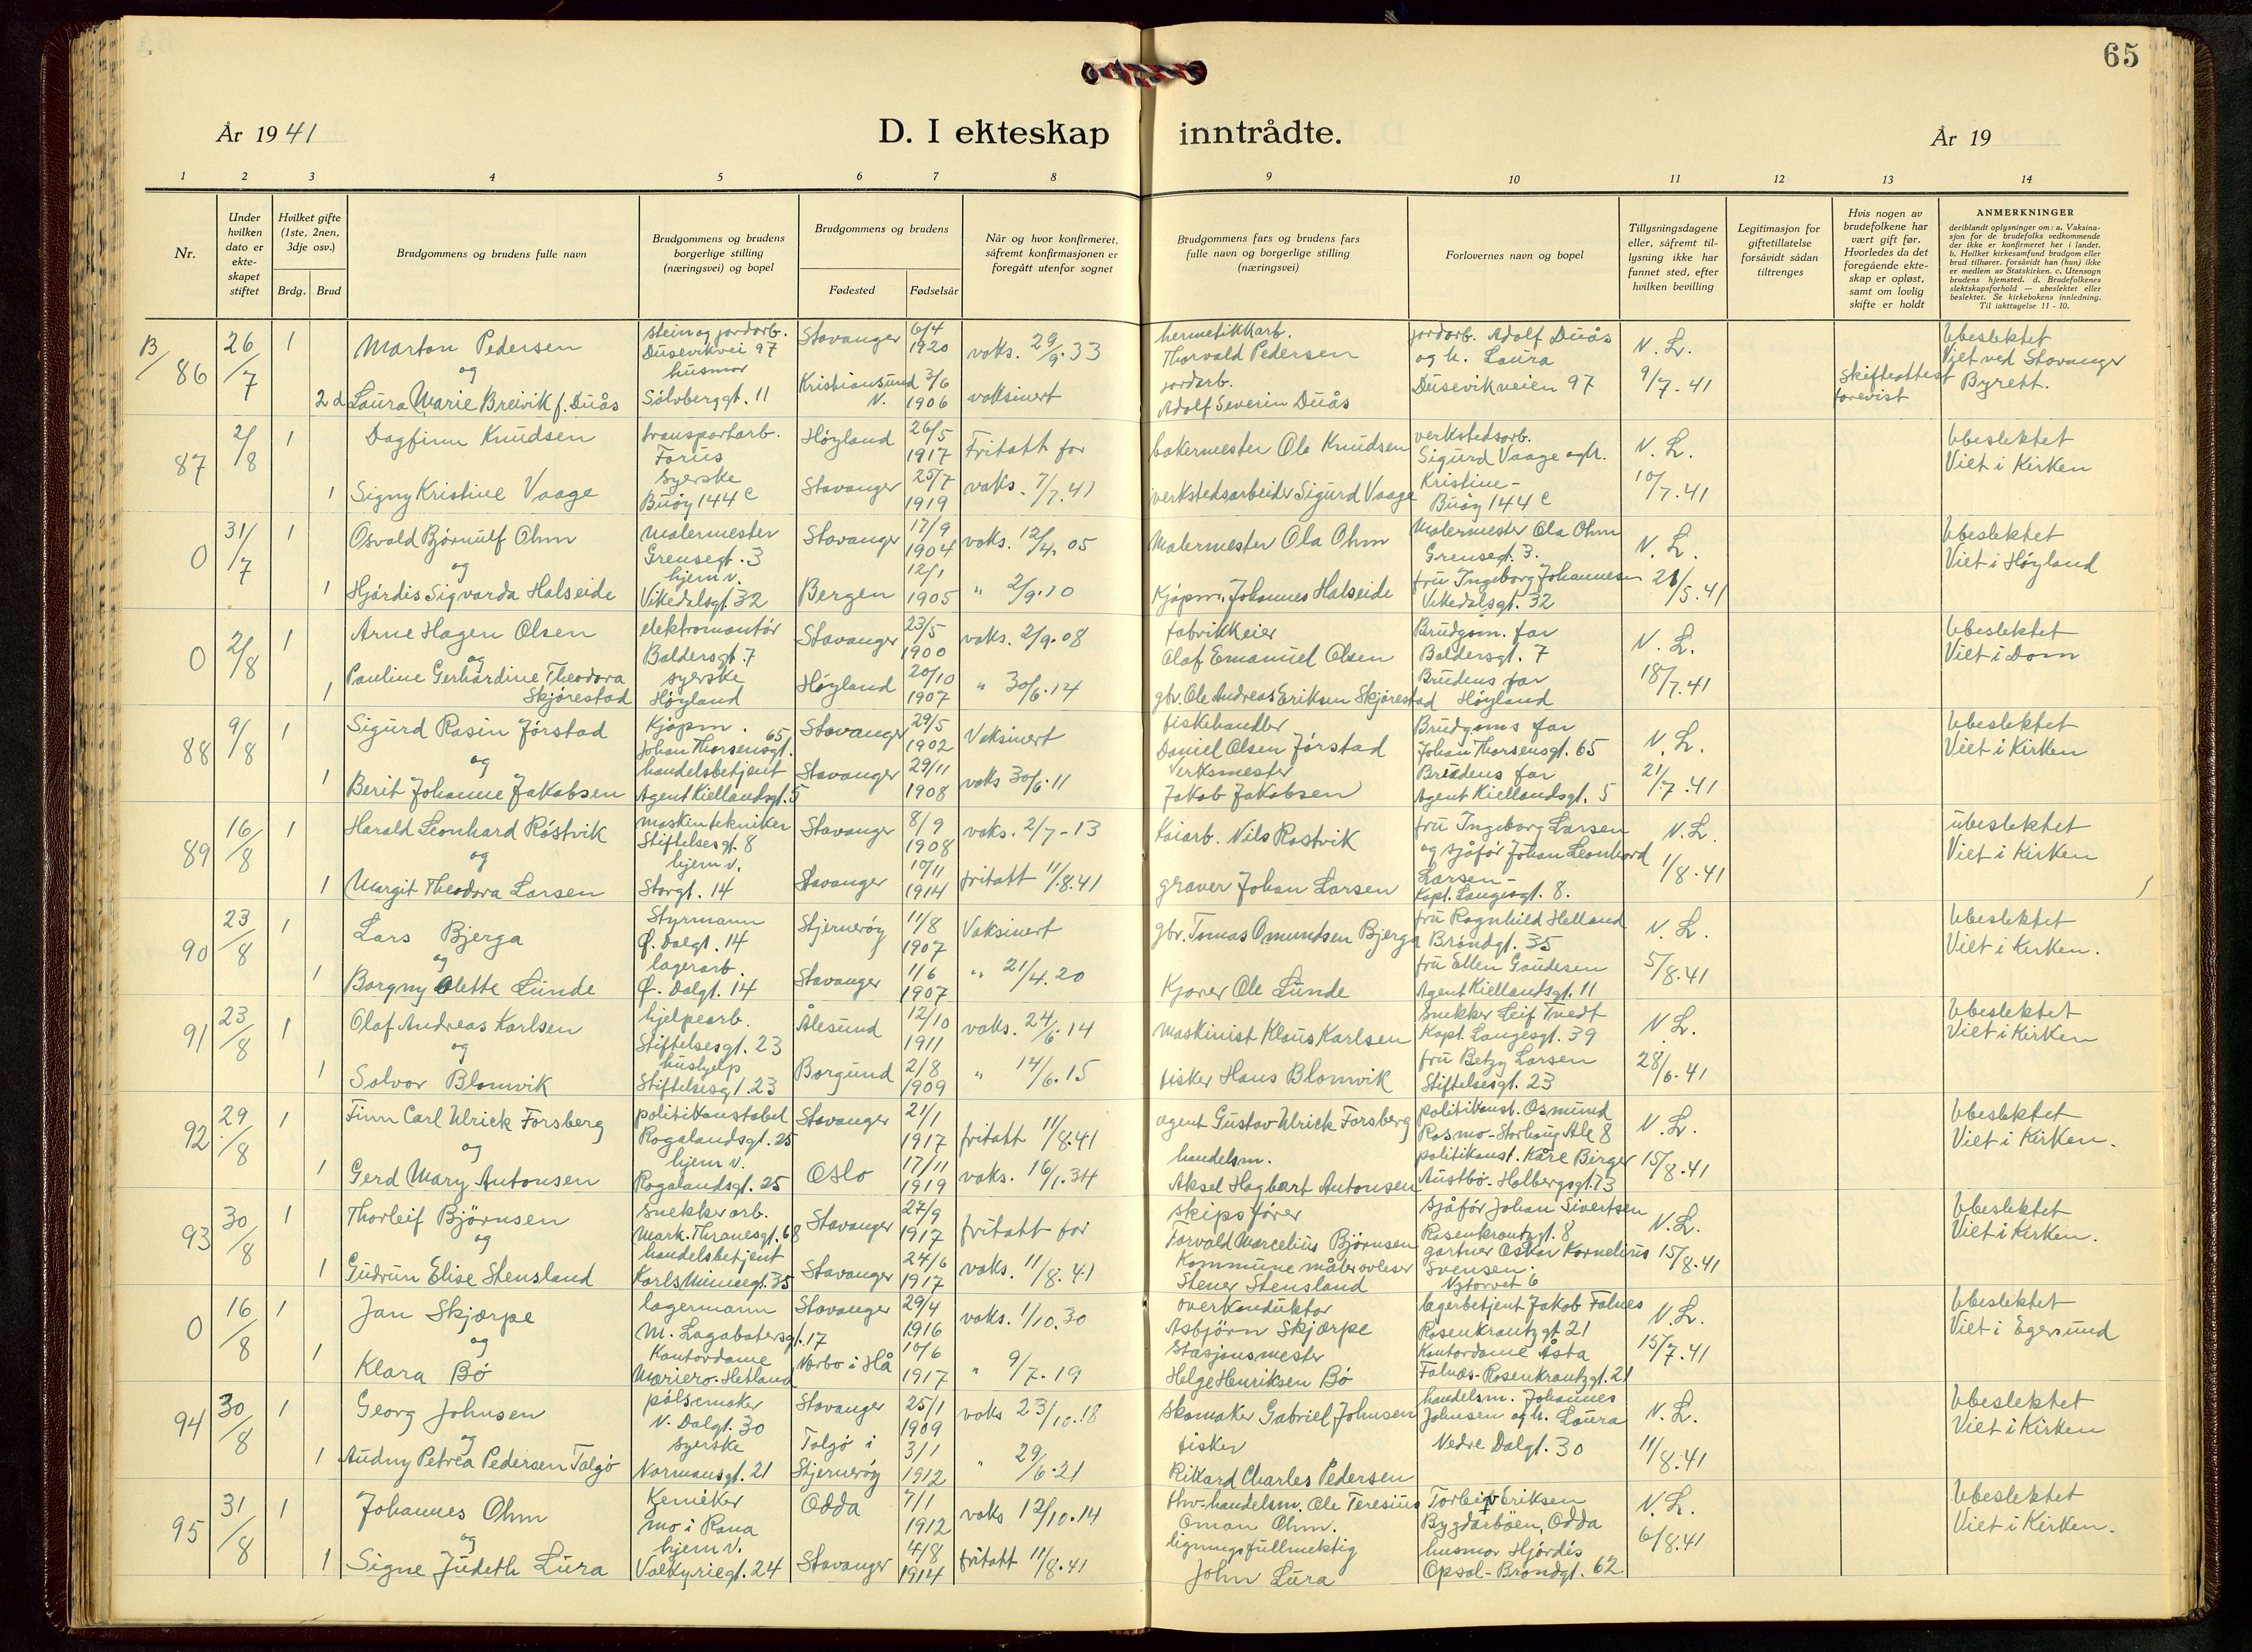 65
År 1941
D. I ekteskap inntrådte.
År 19
1 2 3 4 5 6 7 8 9 10 11 12 13 14
Nr.
Under hvilken dato er ekteskapet stiftet
Hvilket gifte (1ste, 2nen, 3dje osv.)
Brdg. Brud
Brudgommens og brudens fulle navn
Brudgommens og brudens borgerlige stilling (næringsvei) og bopel
Brudgommens og brudens
Fødested
Fødselsår
Når og hvor konfirmeret, såfremt konfirmasjonen er foregått utenfor sognet
Brudgommens fars og brudens fars fulle navn og borgerlige stilling (næringsvei)
Forlovernes navn og bopel
Tillysningsdagene eller, såfremt tillysning ikke har funnet sted, efter hvilken bevilling
Legitimasjon for giftetillatelse forsåvidt sådan tiltrenges
Hvis nogen av brudefolkene har vært gift før. Hvorledes da det foregående ekteskap er opløst, samt om lovlig skifte er holdt
ANMERKNINGER
deriblandt oplysninger om: a. Vaksinasjon for de brudefolks vedkommende der ikke er konfirmeret her i landet. b. Hvilket kirkesamfund brudgom eller brud tilhører, forsåvidt han (hun) ikke er medlem av Statskirken. c. Utensogn brudens hjemsted. d. Brudefolkenes slektskapsforhold — ubeslektet eller beslektet. Se kirkebokens innledning. Til iakttagelse 11 - 10.
B/86 26/7 1 Marton Pedersen stein og jordarb. Dusevikvei 97 Stavanger 6/4 1920 vaks. 29/9.33 hermetikkarb. Thorvald Pedersen jordarb. Adolf Duås og h. Laura N. L. Ubeslektet
og
2d Laura Marie Breivik f. Duås husmor Sølvberggt. 11 Kristiansund N. 3/6 1906 vaksinert jordarb. Adolf Severin Duås Dusevikveien 97 9/7.41 Skifteattest forevist Viet ved Stavanger Byrett.
87 2/8 1 Dagfinn Knudsen transportarb. Forus Høyland 26/5 1917 Fritatt for bakermester Ole Knudsen verkstedsarb. Sigurd Vaage og h. N. L. Ubeslektet
1 Signy Kristine Vaage syerske Buøy 144 c Stavanger 25/7 1919 vaks. 7/7.41 verkstedsarbeider Sigurd Vaage Kristine - Buøy 144 c 10/7.41 Viet i Kirken
0 31/7 1 Osvald Bjørnulf Ohm Malermester Grensegt. 3 Stavanger 17/9 1904 vaks. 12/4.05 Malermester Ola Ohm Malermester Ola Ohm Grensegt. 3. N. L. Ubeslektet
og
1 Hjørdis Sigvarda Halseide hjem v. Vikedalsgt. 32 Bergen 12/1 1905 " 2/9.10 Kjøpm. Johannes Halseide fru Ingeborg Johannesen Vikedalsgt. 32 21/5.41 Viet i Høyland
0 2/8 1 Arne Hagen Olsen elektromontør Baldersgt. 7 Stavanger 23/5 1900 vaks. 2/9.08 fabrikkeier Olaf Emanuel Olsen Brudgom. far Baldersgt. 7 N. L. Ubeslektet
og
1 Pauline Gerhardine Theodora Skjørestad syerske Høyland Høyland 20/10 1907 " 30/6.14 gbr. Ole Andreas Eriksen Skjørestad Brudens far Høyland 18/7.41 Viet i Dom
88 9/8 1 Sigurd Rasin Jørstad Kjøpm. Johan Thorsensgt. 65 Stavanger 29/5 1902 Vaksinert fiskehandler Daniel Olsen Jørstad Brudgoms far Johan Thorsensgt. 65 N. L. Ubeslektet
og
1 Berit Johanne Jakobsen handelsbetjent Agent Kiellandsgt. 5 Stavanger 29/11 1908 vaks 30/6.11 Verksmester Jakob Jakobsen Brudens far Agent Kiellandsgt. 5 21/7.41 Viet i Kirken
89 16/8 1 Harald Leonhard Røstvik maskintekniker Stiftelsesgt. 8 Stavanger 8/9 1908 vaks. 2/7-13 Kaiarb. Nils Rostvik fru Ingeborg Larsen og sjåfør Johan Leonhard N. L. ubeslektet
og
1 Margit Theodora Larsen hjem v. Storgt. 14 Stavanger 10/11 1914 fritatt 11/8.41 graver Johan Larsen Larsen - Kapt. Langesgt. 8. 1/8.41 Viet i Kirken
90 23/8 1 Lars Bjerga Styrmann Ø. Dalgt. 14 Stjernerøy 11/8 1907 Vaksinert gbr. Tomas Omundsen Bjerga fru Ragnhild Helland Brøndgt. 35 N. L. Ubeslektet
og
1 Borgny Olette Lunde lagerarb. Ø. Dalgt. 14 Stavanger 1/6 1907 " 21/4.20 Kjører Ole Lunde fru Ellen Gaudesen Agent Kiellandsgt. 11 5/8.41 Viet i Kirken.
91 23/8 1 Olaf Andreas Karlsen hjelpearb. Stiftelsesgt. 23 Ålesund 12/10 1911 vaks. 24/6.14 maskinist Klaus Karlsen Snekker Leif Tvedt Kapt. Langesgt. 39 N. L. Ubeslektet
og
1 Solvor Blomvik hushjelp Stiftelsesgt. 23 Borgund 2/8 1909 " 14/6.15 fisker Hans Blomvik fru Betzy Larsen Stiftelsesgt. 23 28/6.41 Viet i Kirken
92 29/8 1 Finn Carl Ulrick Forsberg politikonstabel Rogalandsgt. 25 Stavanger 21/1 1917 fritatt 11/8.41 agent Gustav Ulrick Forsberg politikonst. Osmund Rosmo - Storhaug Ale 8 N. L. Ubeslektet
og
1 Gerd Mary Antonsen hjem v. Rogalandsgt. 25 Oslo 17/11 1919 vaks. 16/1.34 handelsm. Aksel Hagbart Antonsen politikonst. Kåre Birger Austbø - Holbergsgt. 13 15/8.41 Viet i Kirken.
93 30/8 1 Thorleif Bjørnsen Snekkerarb. Mark. Thranesgt. 68 Stavanger 27/9 1917 fritatt for skipsfører Torvald Marcelius Bjørnsen sjåfør Johan Sivertsen Rosenkrantzgt. 8 N. L. Ubeslektet
og
1 Gudrun Elise Stensland handelsbetjent Karls Minnegt. 35 Stavanger 24/6 1917 vaks. 11/8.41 Kommune måleravleser Stener Stensland gartner Oskar Kornelius Svensen. Nytorvet 6 15/8.41 Viet i Kirken.
0 16/8 1 Jan Skjærpe lagermann M. Lagabøtersgt. 17 Stavanger 29/4 1916 vaks. 1/10.30 overkonduktør Asbjørn Skjærpe lagerbetjent Jakob Falnes Rosenkrantzgt 21 N. L. Ubeslektet
og
1 Klara Bø Kontordame Mariero - Hetland Norbø i Hå 10/6 1917 " 9/7.19 Stasjonsmester Helge Henriksen Bø Kontordame Åsta Falnes - Rosenkrantzgt. 21 15/7.41 Viet i Egersund
94 30/8 1 Georg Johnsen pølsemaker N. Dalgt. 30 Stavanger 25/1 1909 vaks 23/10.18 Skomaker Gabriel Johnsen handelsm. Johannes Johnsen og h. Laura N. L. Ubeslektet
og
1 Audny Petrea Pedersen Talgø syerske Normansgt. 21 Talgø i Stjernerøy 3/1 1912 " 29/6.21 fisker Rikard Charles Pedersen Nedre Dalgt. 30 11/8.41 Viet i Kirken
95 31/8 1 Johannes Ohm Kemiker Mo i Rana Odda 7/1 1912 vaks 12/10.14 Hv-handelsm. Ole Teresius Oman Ohm. Torleiv Eriksen Bygdarbøen, Odda N. L. Ubeslektet
og
1 Signe Judeth Lura hjem v. Valkyriegt. 24 Stavanger 4/8 1914 fritatt 11/8.41 ligningsfullmektig John Lura husmor Hjørdis Opsal - Brøndgt. 62 6/8.41 Viet i Kirken.